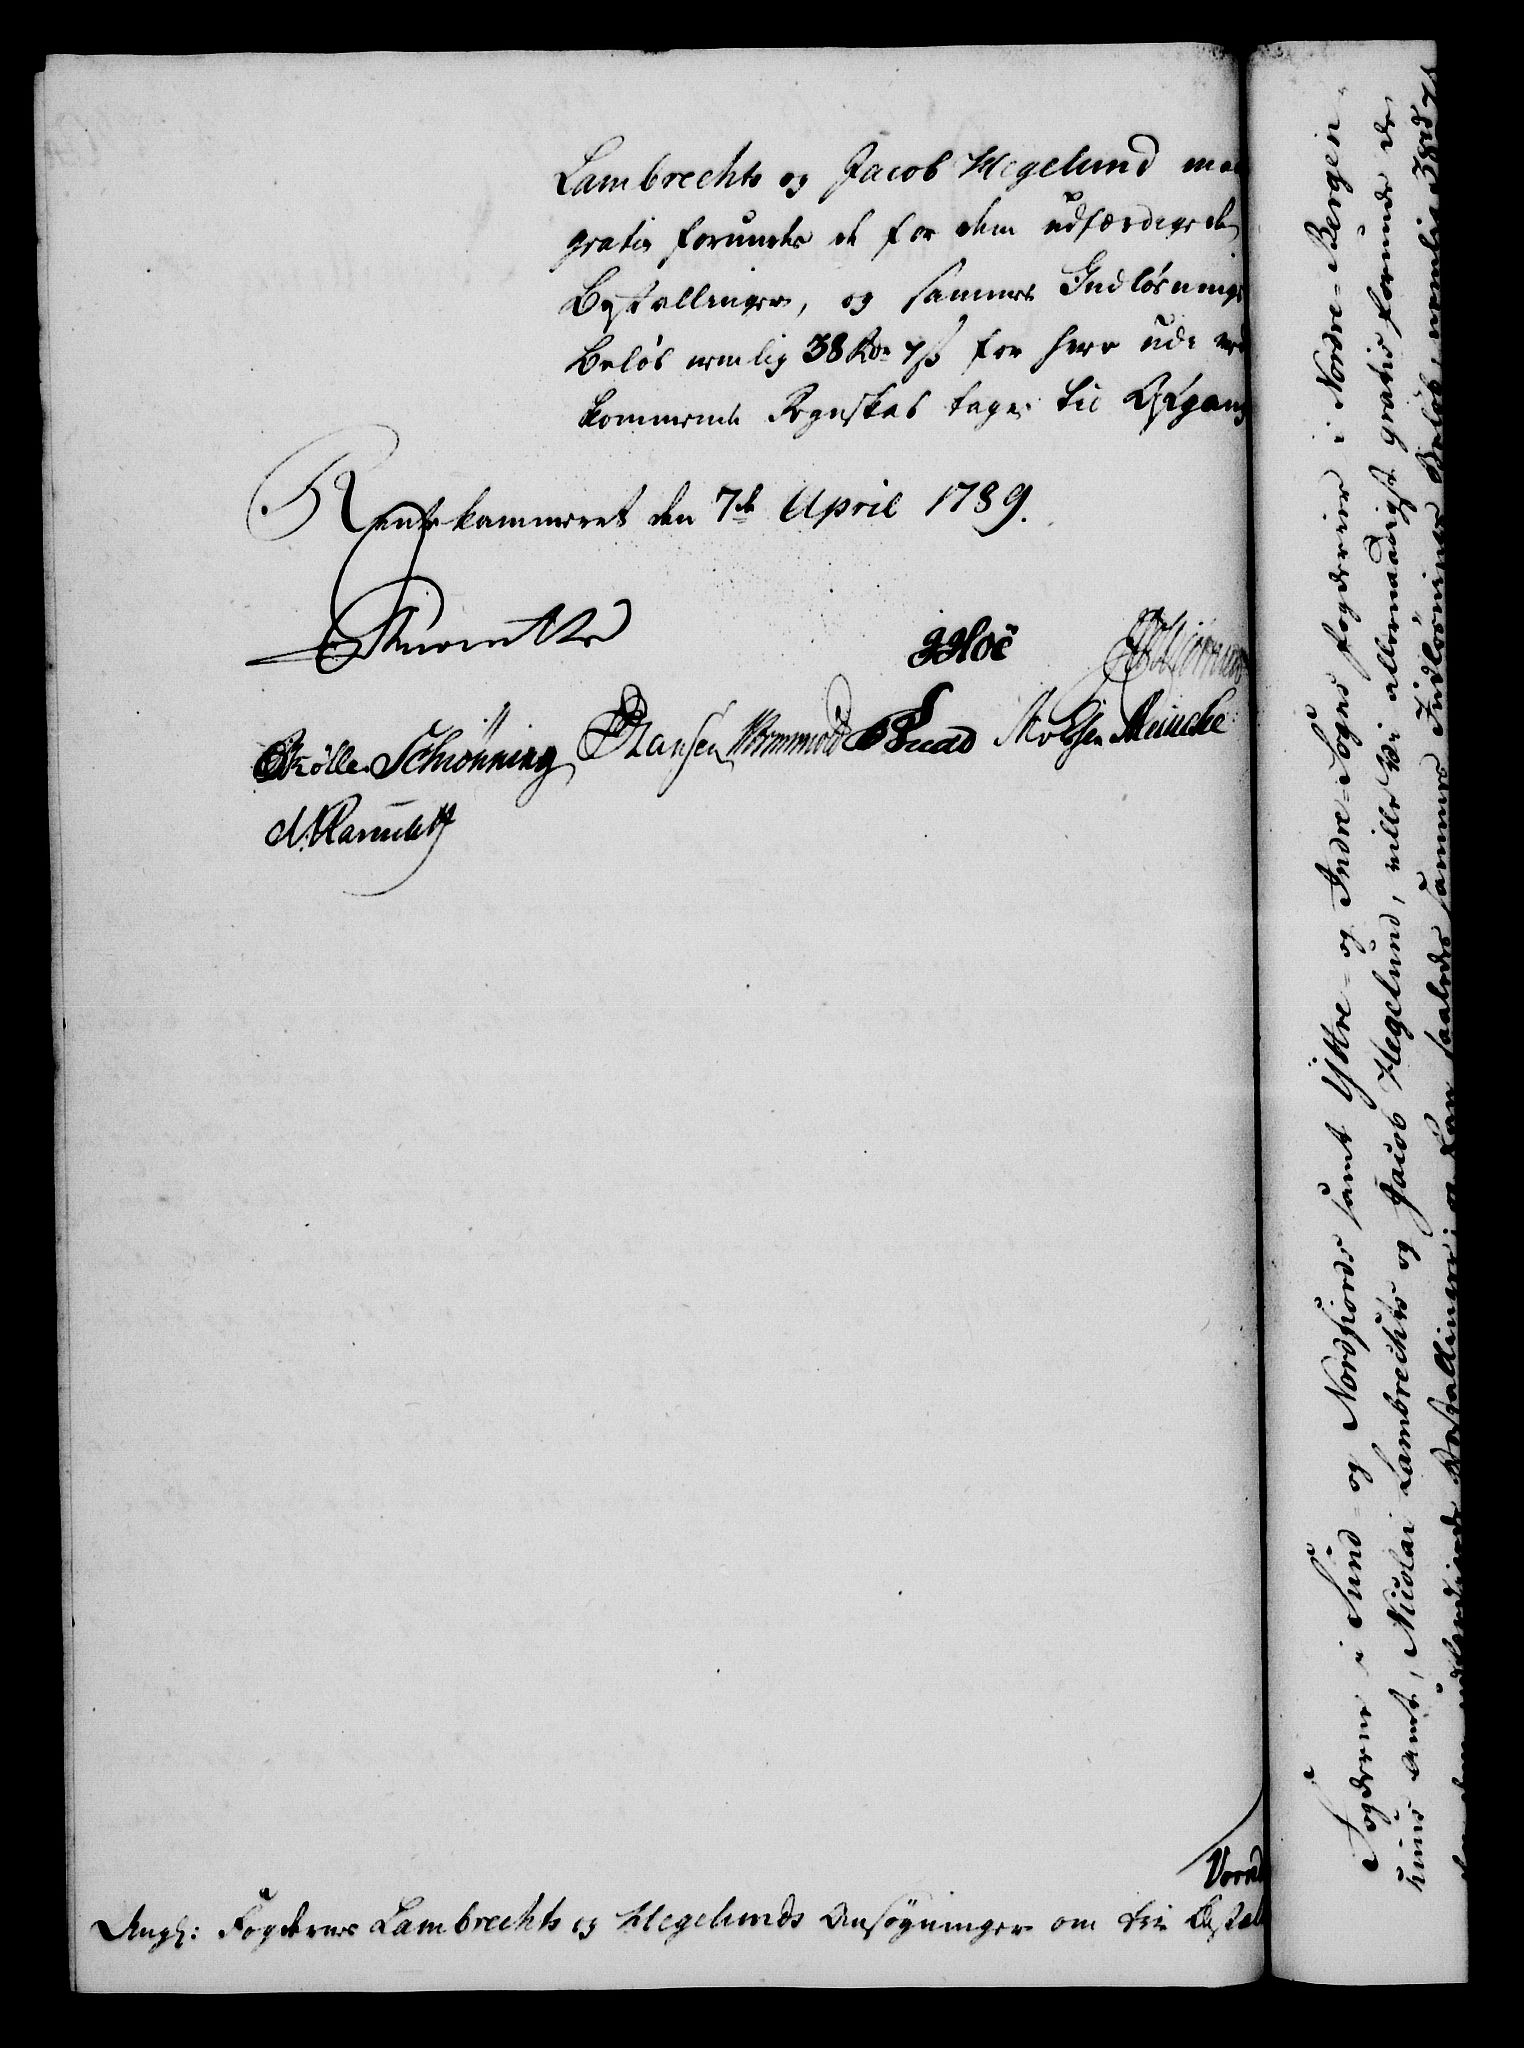 Lambrechts og Jacob Hegelund maa
gratis forundes de for dem udfærdigede
Bestallinger, og sammes Indløsnings
Beløb nemlig 38 Rdr 7 s for herr ude ved
kommende Regnskab tages til Afgang
Rentekammeret den 7de April 1789.
JHoë
Schiönning Hansen Wormwold Meincke
Angh: Fogderne Lambrechts og Hegelunds Ansøgninger om frie Bestall
Fogderne i Sund- og Nordfiords samt Ÿttre- og Indre-Sogns Fogderier i Nordre-Bergen-
huus Amt, Nicolai Lambrechts og Jacob Hegelund, ville Vi allernaadigst gratis forunde de
for dem udfærdigede Bestallinger; og kan saaledes sammes Indløsnings Beløb, nemlig 38rd 7s